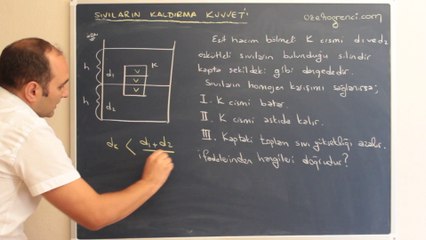 SIVILARIN KALDIRMA KUVVETİ
ozelogrenci.com
Eşit hacim bölmeli K cismi d₁ ve d₂
özkütleli sıvıların bulunduğu silindir
kapta şekildeki gibi dengededir.
Sıvıların homojen karışımı sağlanırsa;
I. K cismi batar.
II. K cismi askıda kalır.
III. Kaptaki toplam sıvı yüksekliği azalır.
ifadelerinden hangileri doğrudur?
h
d₁
V
K
V
h
d₂
V
dₖ < d₁+d₂